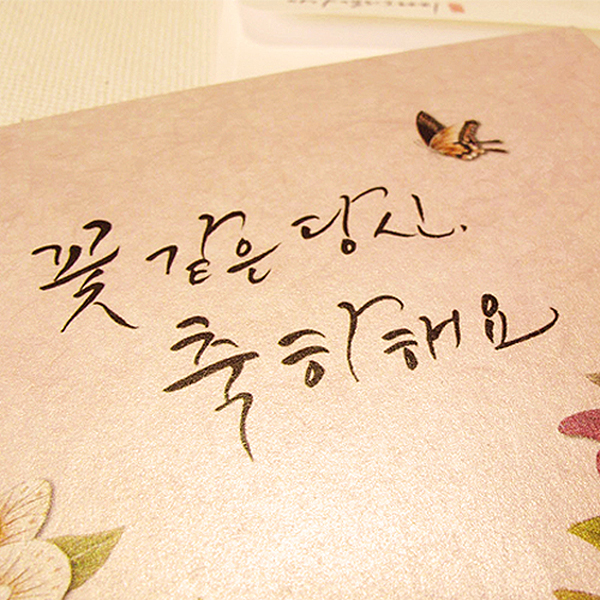 꽃 같은 당신.
축하해요